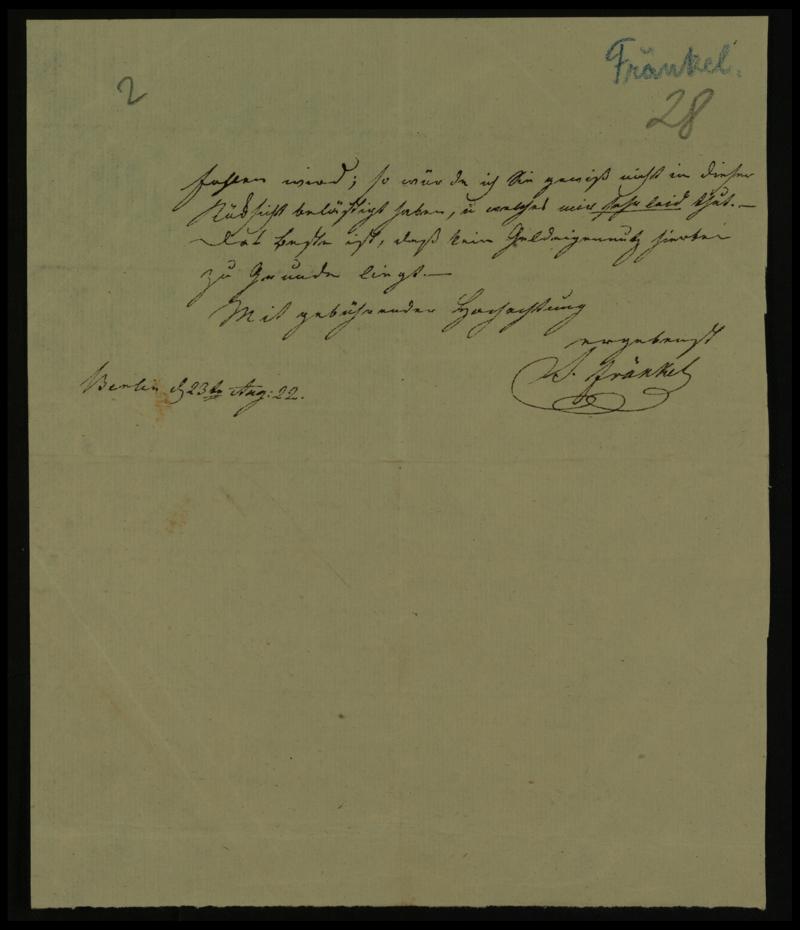 Fränkel.
2
28
fohlen wird; so würde ich Sie gewiß nicht in dieser
Rüksicht belästigt haben, u welches mir sehr leid thut.—
Das beste ist, daß kein Geldeigennutz hierbei
zu Grunde liegt.—
Mit gebührender Hochachtung
ergebenst
S. Fränkel
Berlin d 23ten Aug: 22.